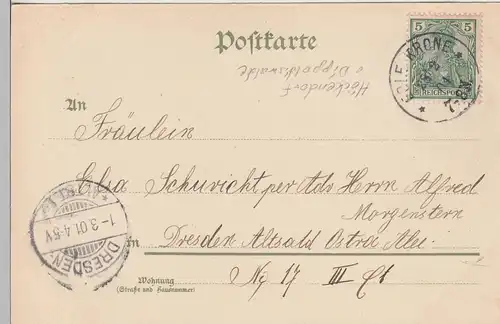 Postkarte
Höckendorf
b Dippoldiswalde
5 5
REICHSPOST
KRONE
7-8V
An
Fräulein
Elsa Schuricht per Adr Herrn Alfred
Morgenstern
in Dresden Altsald Ostra Alei
No 17 III Et
DRESDEN-
1-3.01.4-5N
ALTST.
Wohnung
(Straße und Hausnummer)